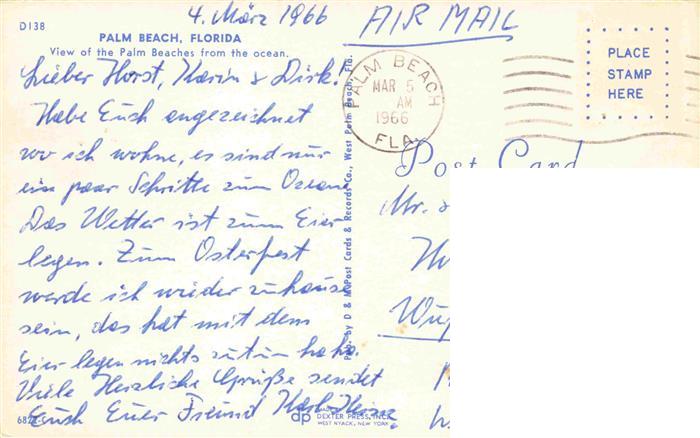 4. März 1966
AIR MAIL
D138
PALM BEACH, FLORIDA
View of the Palm Beaches from the ocean.
Lieber Horst, Karin & Dirk!
Habe Euch angezeichnet
wo ich wohne, es sind nur
ein paar Schritte zum Ozean.
Das Wetter ist zum Eier
legen. Zum Osterfest
werde ich wieder zuhause
sein, das hat mit dem
Eier legen nichts zu tun haha.
Viele Herzliche Grüße sendet
Euch Euer Freund Karl-Heinz.
PALM BEACH
MAR 5
AM
1966
FLA.
PLACE
STAMP
HERE
Post Card
Mr. &
Wup
Post Cards & Records Co., West Palm Beach, Fla.
dp
DEXTER PRESS, INC.
WEST NYACK, NEW YORK